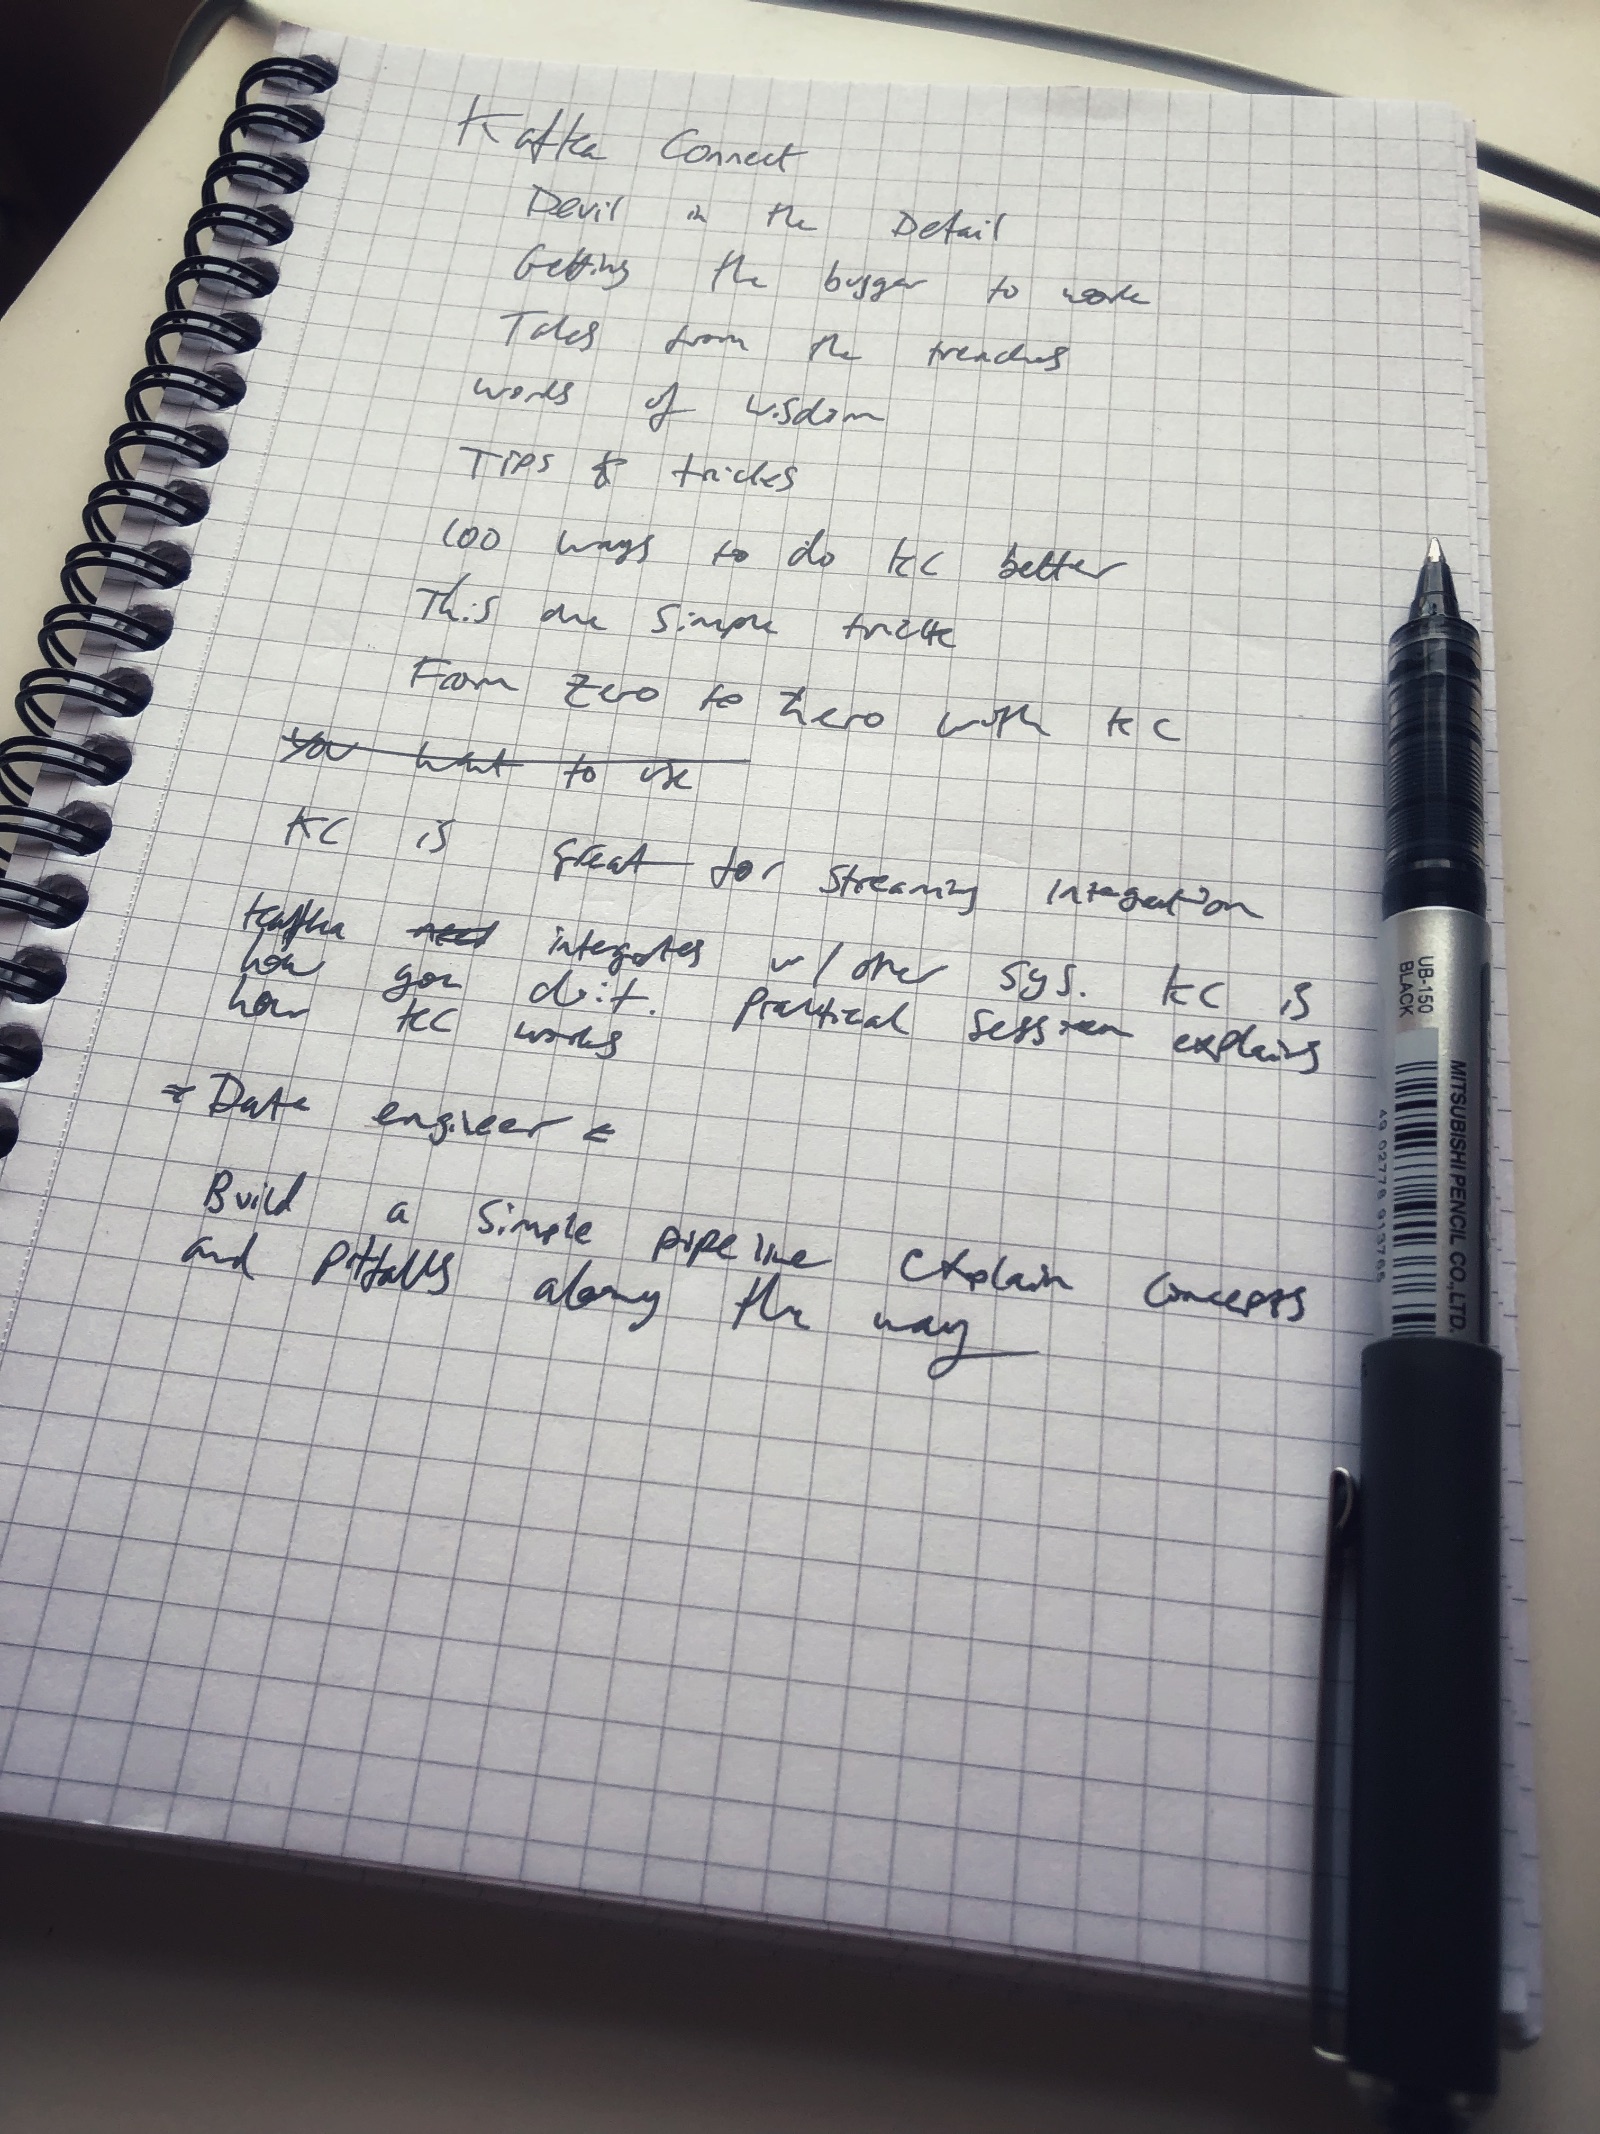 Kafka Connect
Devil in the Detail
Getting the bugger to work
Tales from the trenches
Words of wisdom
Tips & tricks
100 ways to do KC better
This one simple trick
From zero to hero with KC
You want to use
KC is great for streaming integration
Kafka need integrates w/ other sys. KC is
how you do it. Practical session explains
how KC works
Data engineer
Build a simple pipeline explain concepts
and pitfalls along the way
UB-150
BLACK
MITSUBISHI PENCIL CO., LTD.